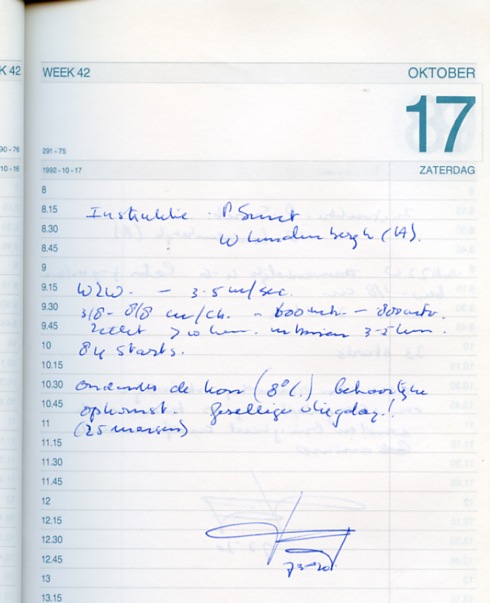 K 42
WEEK 42
OKTOBER
17
90 - 76
291 - 75
10 - 16
1992 - 10 - 17
ZATERDAG
8
8.15 Instruktie P. Smet
8.30 W Lindenbergh (LA).
8.45
9
9.15 WZW. - 3-5 m/sec.
9.30 3/8 - 8/8 cu/ch. - 600 mtr. - 800 mtr.
9.45 Zicht > 10 km. 3-5 km.
10 84 starts.
10.15
10.30 ondanks de kou (8°C.) behoorlijke
10.45 opkomst. gezellige vliegdag!
11 (25 mensen)
11.15
11.30
11.45
12
12.15
12.30
12.45
13
13.15